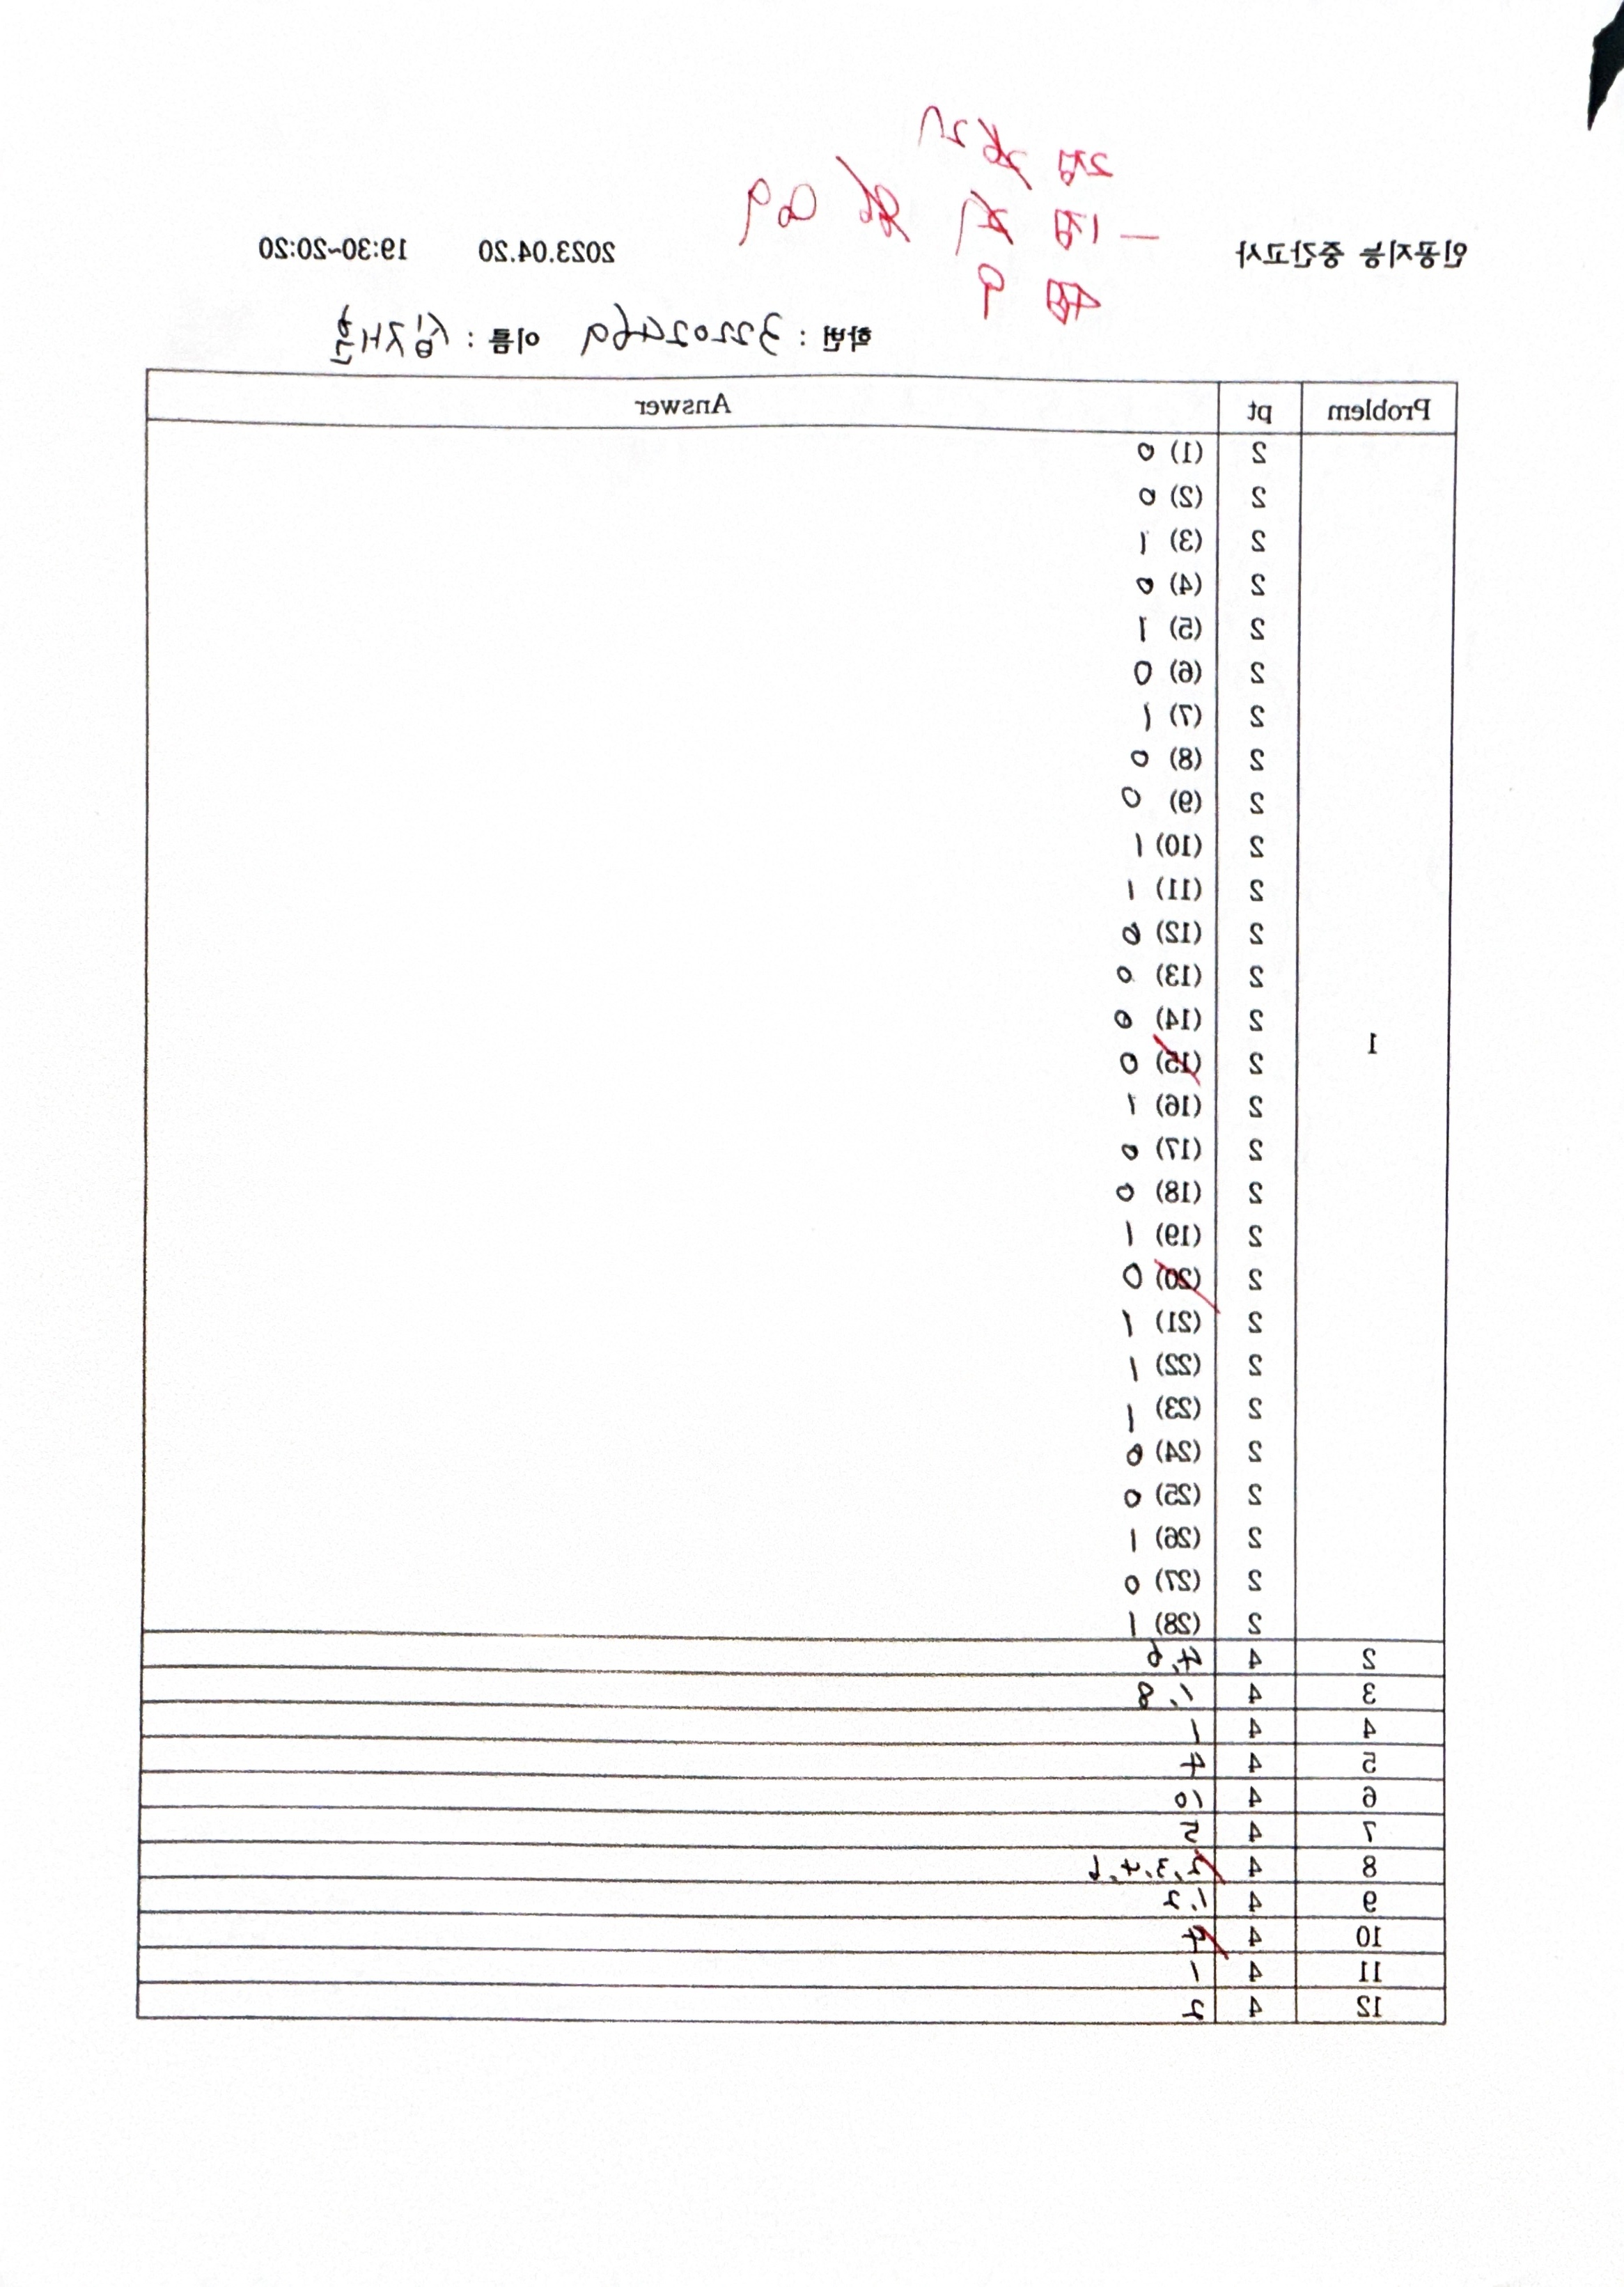 2점
- 1점
4점 9
인공지능 중간고사 2023.04.20 19:30~20:20
학번 : 32202469 이름 : 심재훈
Problem pt Answer
1
2 (1) 0
2 (2) 0
2 (3) 1
2 (4) 0
2 (5) 1
2 (6) 0
2 (7) 1
2 (8) 0
2 (9) 0
2 (10) 1
2 (11) 1
2 (12) 0
2 (13) 0
2 (14) 0
2 (15) 0
2 (16) 1
2 (17) 0
2 (18) 0
2 (19) 1
2 (20) 0
2 (21) 1
2 (22) 1
2 (23) 1
2 (24) 0
2 (25) 0
2 (26) 1
2 (27) 0
2 (28) 1
2 4 4, 6
3 4 1, 8
4 4 1
5 4 4
6 4 10
7 4 5
8 4 2, 3, 4, 6
9 4 1, 2
10 4 4
11 4 1
12 4 2